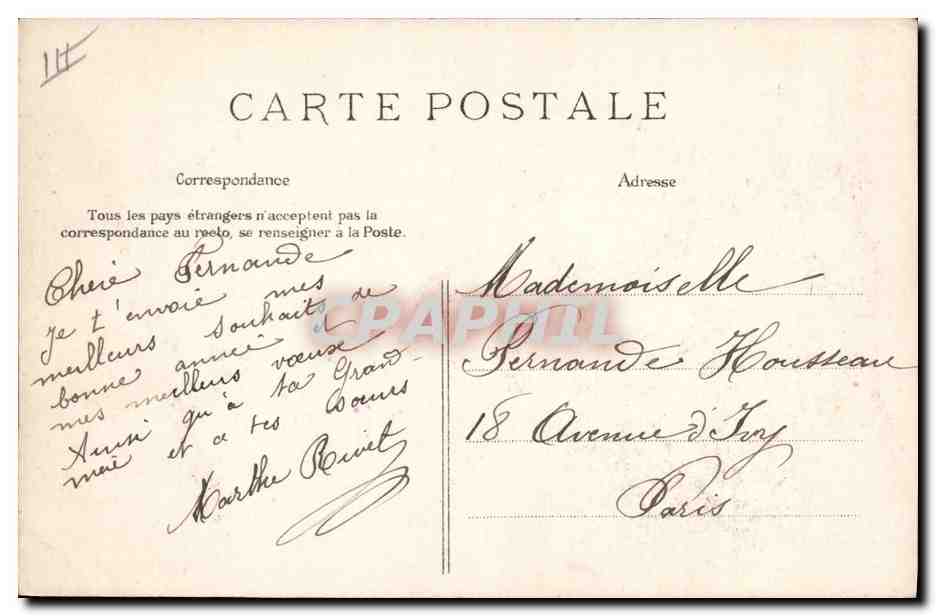 III
CARTE POSTALE
Correspondance
Adresse
Tous les pays étrangers n'acceptent pas la
correspondance au recto, se renseigner à la Poste.
Chère Fernande
je t'envoie mes
meilleurs souhaits de
bonne année et
mes meilleurs vœux
Ainsi qu'à ta Grand-
mère et a tes sœurs
Marthe Rivet
Mademoiselle
Fernande Housseau
18 Avenue d'Ivry
Paris
CPAPHIL